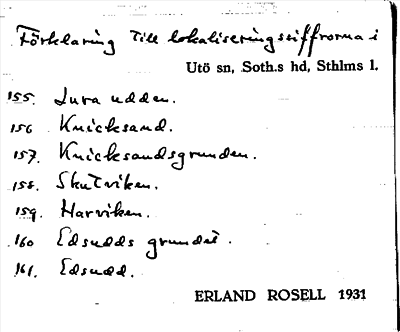 Förklaring till lokaliseringssiffrorna i
Utö sn, Soth.s hd, Sthlms l.
155. Jura udden.
156 Knicksand.
157. Knicksandsgrunden.
158. Skutviken.
159. Harviken.
160 Edsudds grundet.
161. Edsudd.
ERLAND ROSELL 1931